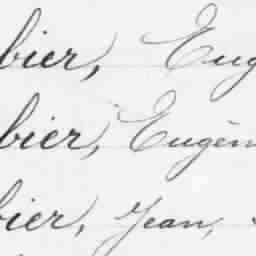 bier, Eug
bier, Eugèn
bier, Jean,